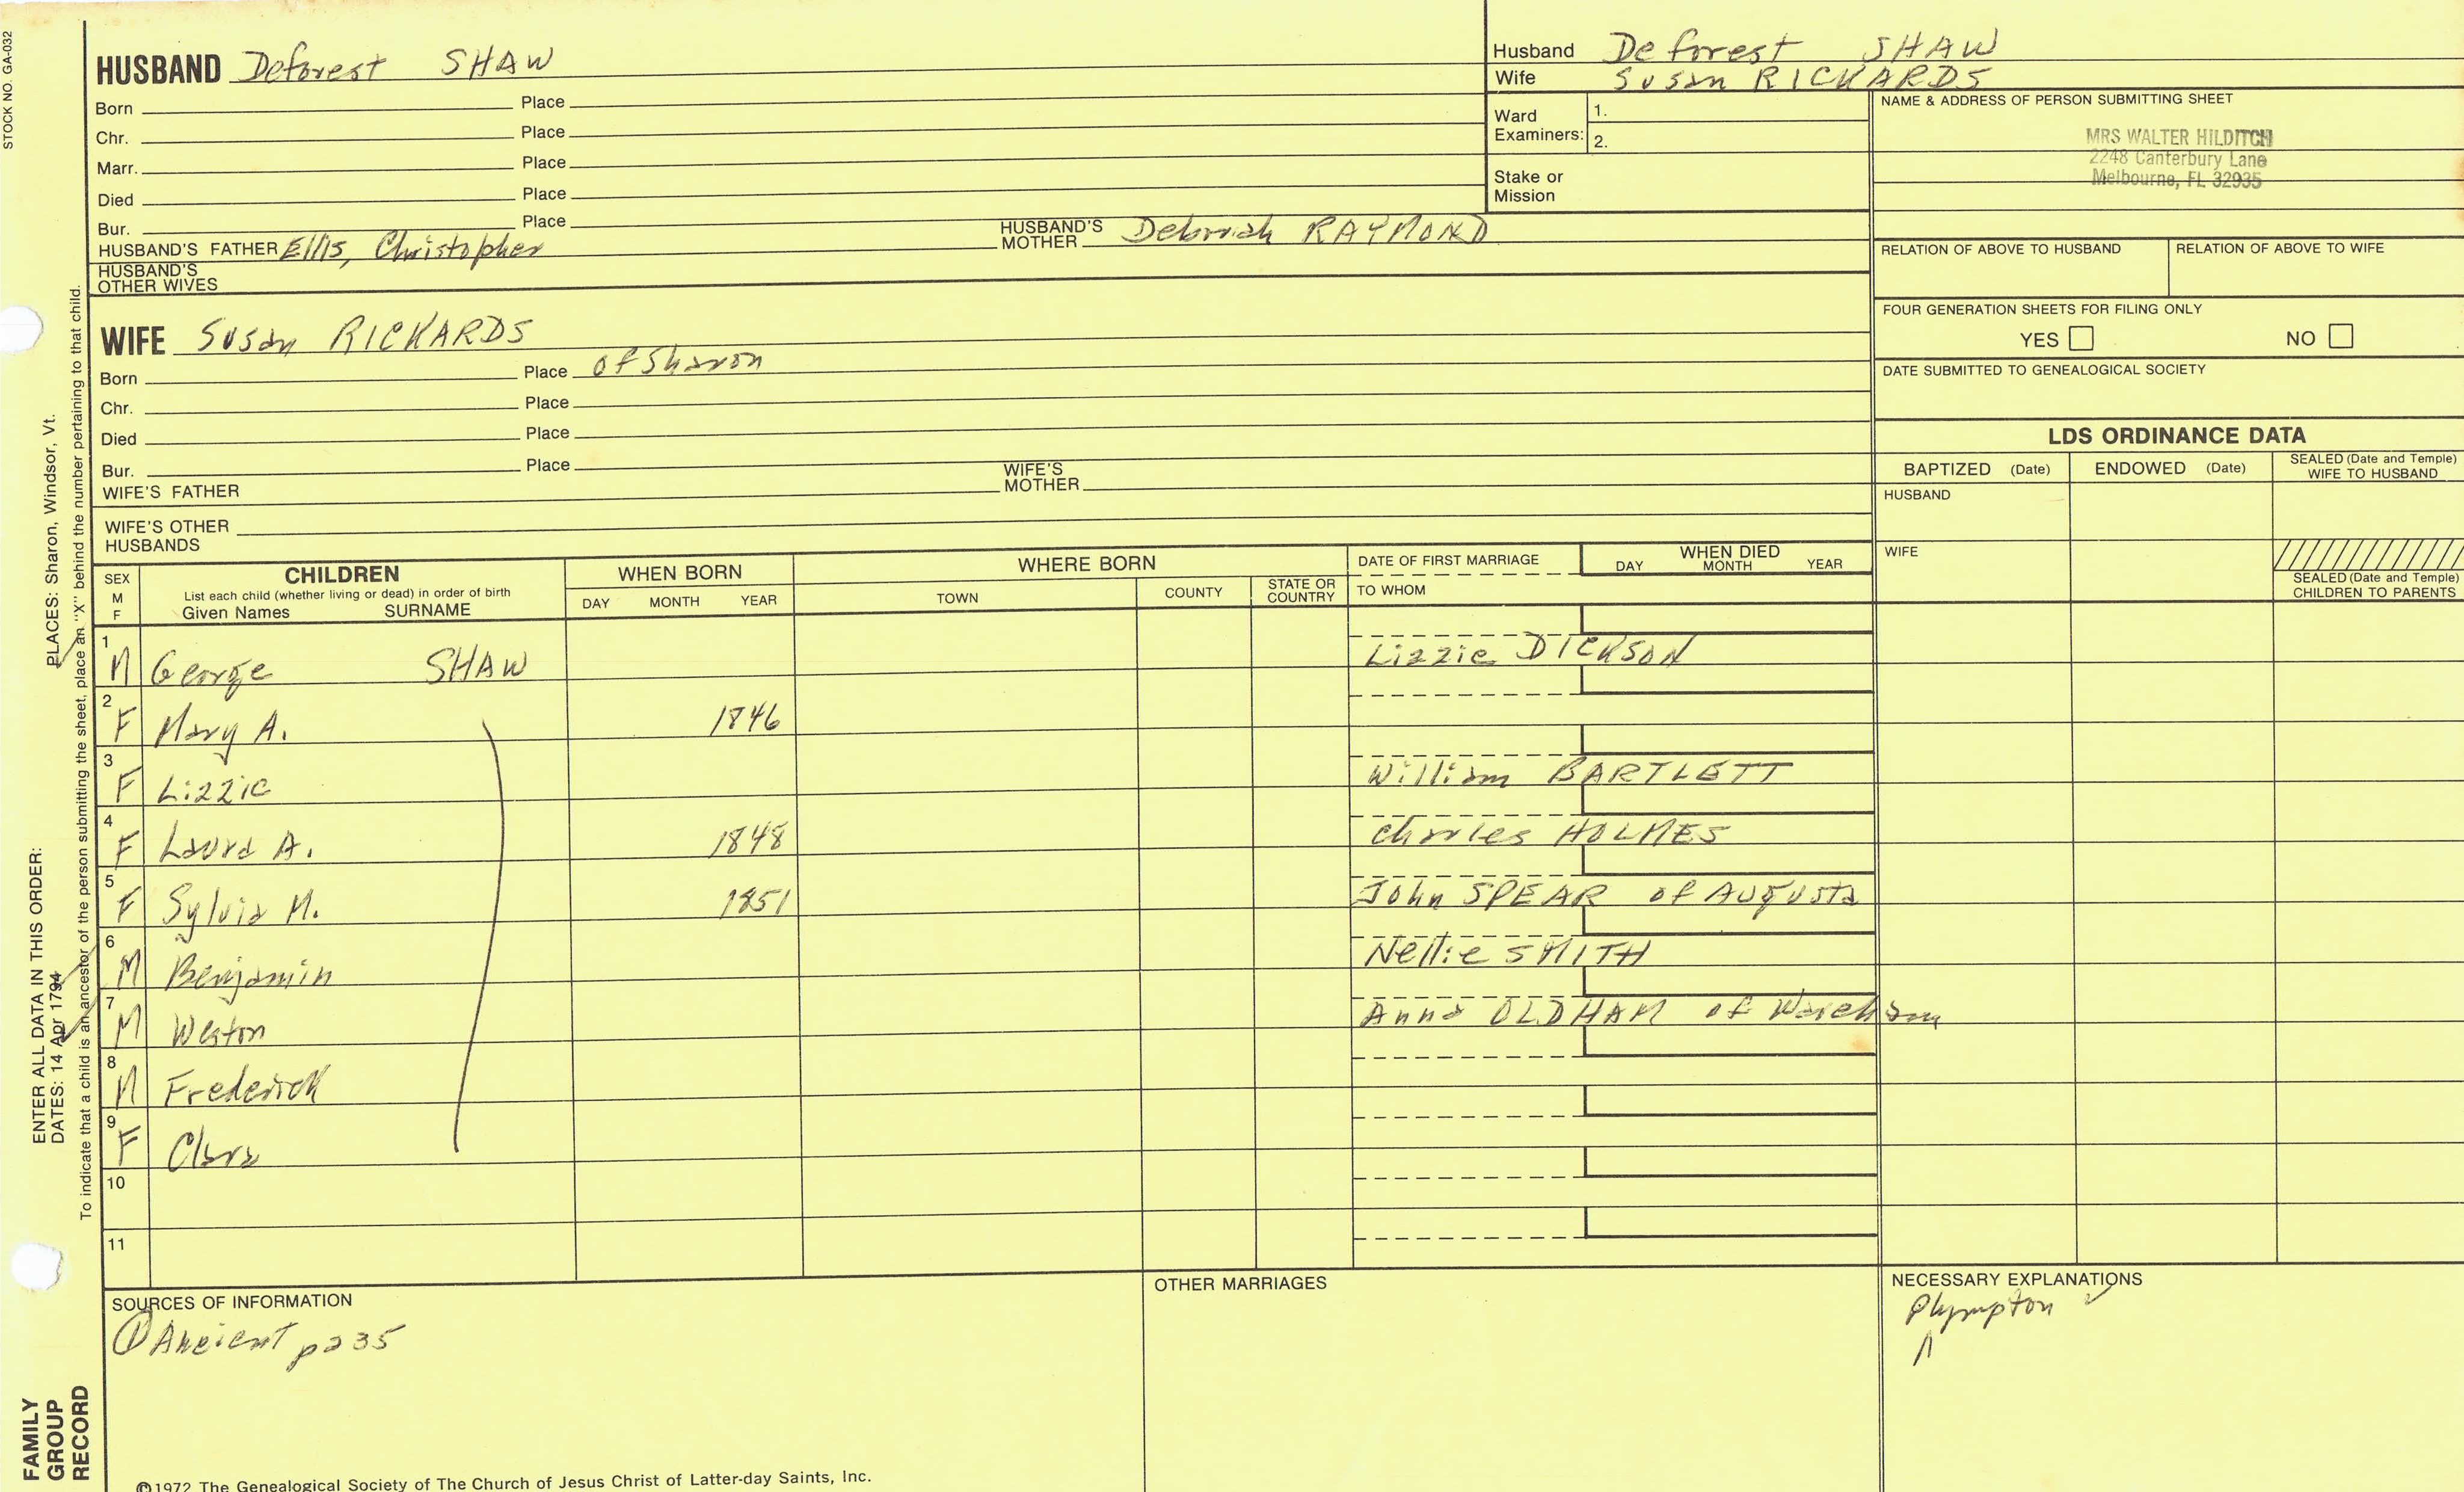 STOCK NO. GA-032
HUSBAND Deforest SHAW
Born Place
Chr. Place
Marr. Place
Died Place
Bur. Place
HUSBAND'S FATHER Ellis, Christopher HUSBAND'S MOTHER Deborah RAYMOND
HUSBAND'S OTHER WIVES
Husband Deforest SHAW
Wife Susan RICKARDS
Ward Examiners: 1.
2.
Stake or Mission
NAME & ADDRESS OF PERSON SUBMITTING SHEET
MRS WALTER HILDITCH
2248 Canterbury Lane
Melbourne, FL 32935
RELATION OF ABOVE TO HUSBAND RELATION OF ABOVE TO WIFE
FOUR GENERATION SHEETS FOR FILING ONLY
YES NO
DATE SUBMITTED TO GENEALOGICAL SOCIETY
WIFE Susan RICKARDS
Born Place of Sharon
Chr. Place
Died Place
Bur. Place
WIFE'S FATHER WIFE'S MOTHER
WIFE'S OTHER HUSBANDS
LDS ORDINANCE DATA
BAPTIZED (Date) ENDOWED (Date) SEALED (Date and Temple) WIFE TO HUSBAND
HUSBAND
WIFE
SEALED (Date and Temple) CHILDREN TO PARENTS
SEX M F
CHILDREN
List each child (whether living or dead) in order of birth
Given Names SURNAME
WHEN BORN
DAY MONTH YEAR
WHERE BORN
TOWN COUNTY STATE OR COUNTRY
DATE OF FIRST MARRIAGE
TO WHOM
WHEN DIED
DAY MONTH YEAR
1 M George SHAW Lizzie DICKSON
2 F Mary A. 1846
3 F Lizzie William BARTLETT
4 F Laura A. 1848 Charles HOLMES
5 F Sylvia M. 1851 John SPEAR of Augusta
6 M Benjamin Nellie SMITH
7 M Weston Anna OLDHAM of Wareham
8 M Frederick
9 F Clara
10
11
SOURCES OF INFORMATION
① Ancient p235
OTHER MARRIAGES
NECESSARY EXPLANATIONS
Plympton
©1972 The Genealogical Society of The Church of Jesus Christ of Latter-day Saints, Inc.
FAMILY GROUP RECORD
ENTER ALL DATA IN THIS ORDER:
DATES: 14 Apr 1794
PLACES: Sharon, Windsor, Vt.
To indicate that a child is an ancestor of the person submitting the sheet, place an "X" behind the number pertaining to that child.